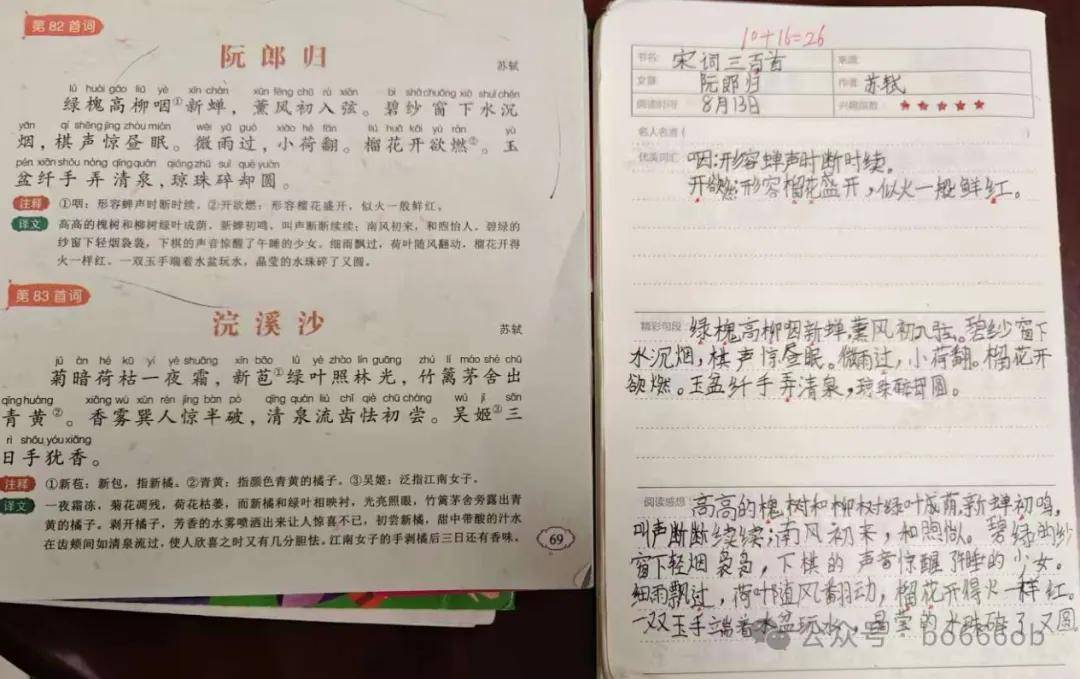 第82首词
阮郎归
苏轼
lǜ huái gāo liǔ yè xīn chán xūn fēng chū rù xián bì shā chuāng xià shuǐ chén
绿槐高柳咽①新蝉，薰风初入弦。碧纱窗下水沉
yān qí shēng jīng zhòu mián wēi yǔ guò xiǎo hé fān liú huā kāi yù rán yù
烟，棋声惊昼眠。微雨过，小荷翻。榴花开欲燃②。玉
pén xiān shǒu nòng qīng quán qióng zhū suì què yuán
盆纤手弄清泉，琼珠碎却圆。
注释 ①咽：形容蝉声时断时续。②开欲燃：形容榴花盛开，似火一般鲜红。
译文 高高的槐树和柳树绿叶成荫，新蝉初鸣，叫声断断续续；南风初来，和煦怡人。碧绿的
纱窗下轻烟袅袅，下棋的声音惊醒了午睡的少女。细雨飘过，荷叶随风翻动，榴花开得
火一样红。一双玉手端着水盆玩水，晶莹的水珠碎了又圆。
第83首词
浣溪沙
苏轼
jú àn hé kū yí yè shuāng xīn bāo lǜ yè zhào lín guāng zhú lí máo shè chū
菊暗荷枯一夜霜，新苞①绿叶照林光，竹篱茅舍出
qīng huáng xiāng wù xùn rén jīng bàn pò qīng quán liú chǐ qiè chū cháng wú jī sān
青黄②。香雾巽人惊半破，清泉流齿怯初尝。吴姬③三
rì shǒu yóu xiāng
日手犹香。
注释 ①新苞：新包，指新橘。②青黄：指颜色青黄的橘子。③吴姬：泛指江南女子。
译文 一夜霜冻，菊花凋残，荷花枯萎，而新橘和绿叶相映衬，光亮照眼，竹篱茅舍旁露出青
黄的橘子。剥开橘子，芳香的水雾喷洒出来让人惊喜不已，初尝新橘，甜中带酸的汁水
在齿颊间如清泉流过，使人欣喜之时又有几分胆怯。江南女子的手剥橘后三日还有香味。
69
10+16=26
书名 宋词三百首 来源
文章 阮郎归 作者 苏轼
阅读时间 8月13日 兴趣指数 ★★★★★
名人名言（ ）
优美词汇 咽:形容蝉声时断时续。
开欲燃:形容榴花盛开，似火一般鲜红。
精彩句段 绿槐高柳咽新蝉,薰风初入弦。碧纱窗下
水沉烟,棋声惊昼眠。微雨过,小荷翻。榴花开
欲燃。玉盆纤手弄清泉,琼珠碎却圆。
阅读感想 高高的槐树和柳树绿叶成荫,新蝉初鸣,
叫声断断续续;南风初来,和煦怡人。碧绿的纱
窗下轻烟袅袅，下棋的声音惊醒午睡的少女。
细雨飘过,荷叶随风翻动,榴花开得火一样红。
一双玉手端着水盆玩水,晶莹的水珠碎了又圆
公众号 bo666ob